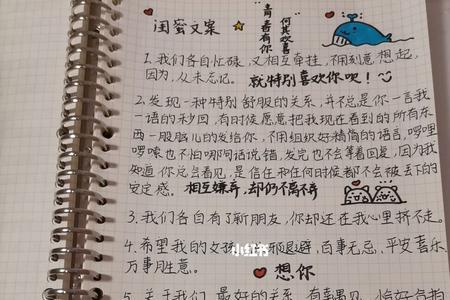 闺蜜文案
青春有你
何其欢喜
1.我们各自忙碌,又相互牵挂,不用刻意想起,
因为,从未忘记。
就特别喜欢你呗!
2.发现一种特别舒服的关系,并不总是你一言我
一语的秒回,有时候愿意把我现在看到的所有东
西一股脑儿的发给你,不用组织好精简的语言,啰哩
啰嗦也不怕哪句话说错,发完也不会等着回复,因为我
知道你总会看见,是信任和任何时候都不会被丢下的
安定感。
相互嫌弃,却仍不离不弃
3.我们各自有了新朋友,你却还在我心里挤不走。
4.希望我的女孩,
邪退避,百事无忌,平安喜乐,
万事胜意。
小红书
想你
5.关于我们,最好的关系,有幸遇见,恰好合拍